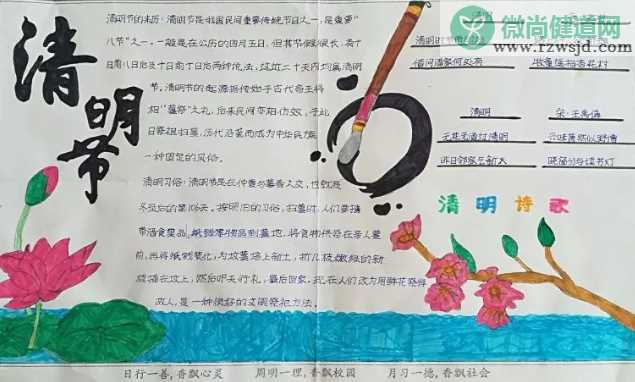 清明节
清明节的来历：清明节是我国民间重要传统节日之一，是重要"
八节"之一，一般是在公历的四月五日，但其节期很长，有十
日前八日后及十日前十日后两种说法，这近二十天内均属清明
节。清明节的起源据传始于古代帝王将
相"墓祭"之礼，后来民间亦相仿效，于此
日祭祖扫墓，历代沿袭而成为中华民族
一种固定的风俗。
清明习俗：清明节是在仲春与暮春之交，也就是
冬至后的第106天。按照旧的习俗，扫墓时，人们要携
带酒食果品，纸钱等物品到墓地，将食物供祭在亲人墓
前，再将纸钱焚化，为坟墓培上新土，折几枝嫩绿的新
枝插在坟上，然后叩头行礼，最后回家，现在人们改为用鲜花祭拜
故人，是一种很好的文明祭祀方法。
清明
借问酒家何处有
牧童遥指杏花村
清明
宋·王禹偁
无花无酒过清明
兴味萧然似野僧
昨日邻家乞新火
晓窗分与读书灯
清明诗歌
日行一善，香飘心灵 周明一理，香飘校园 月习一德，香飘社会
微尚健道网
www.rzwsjd.com